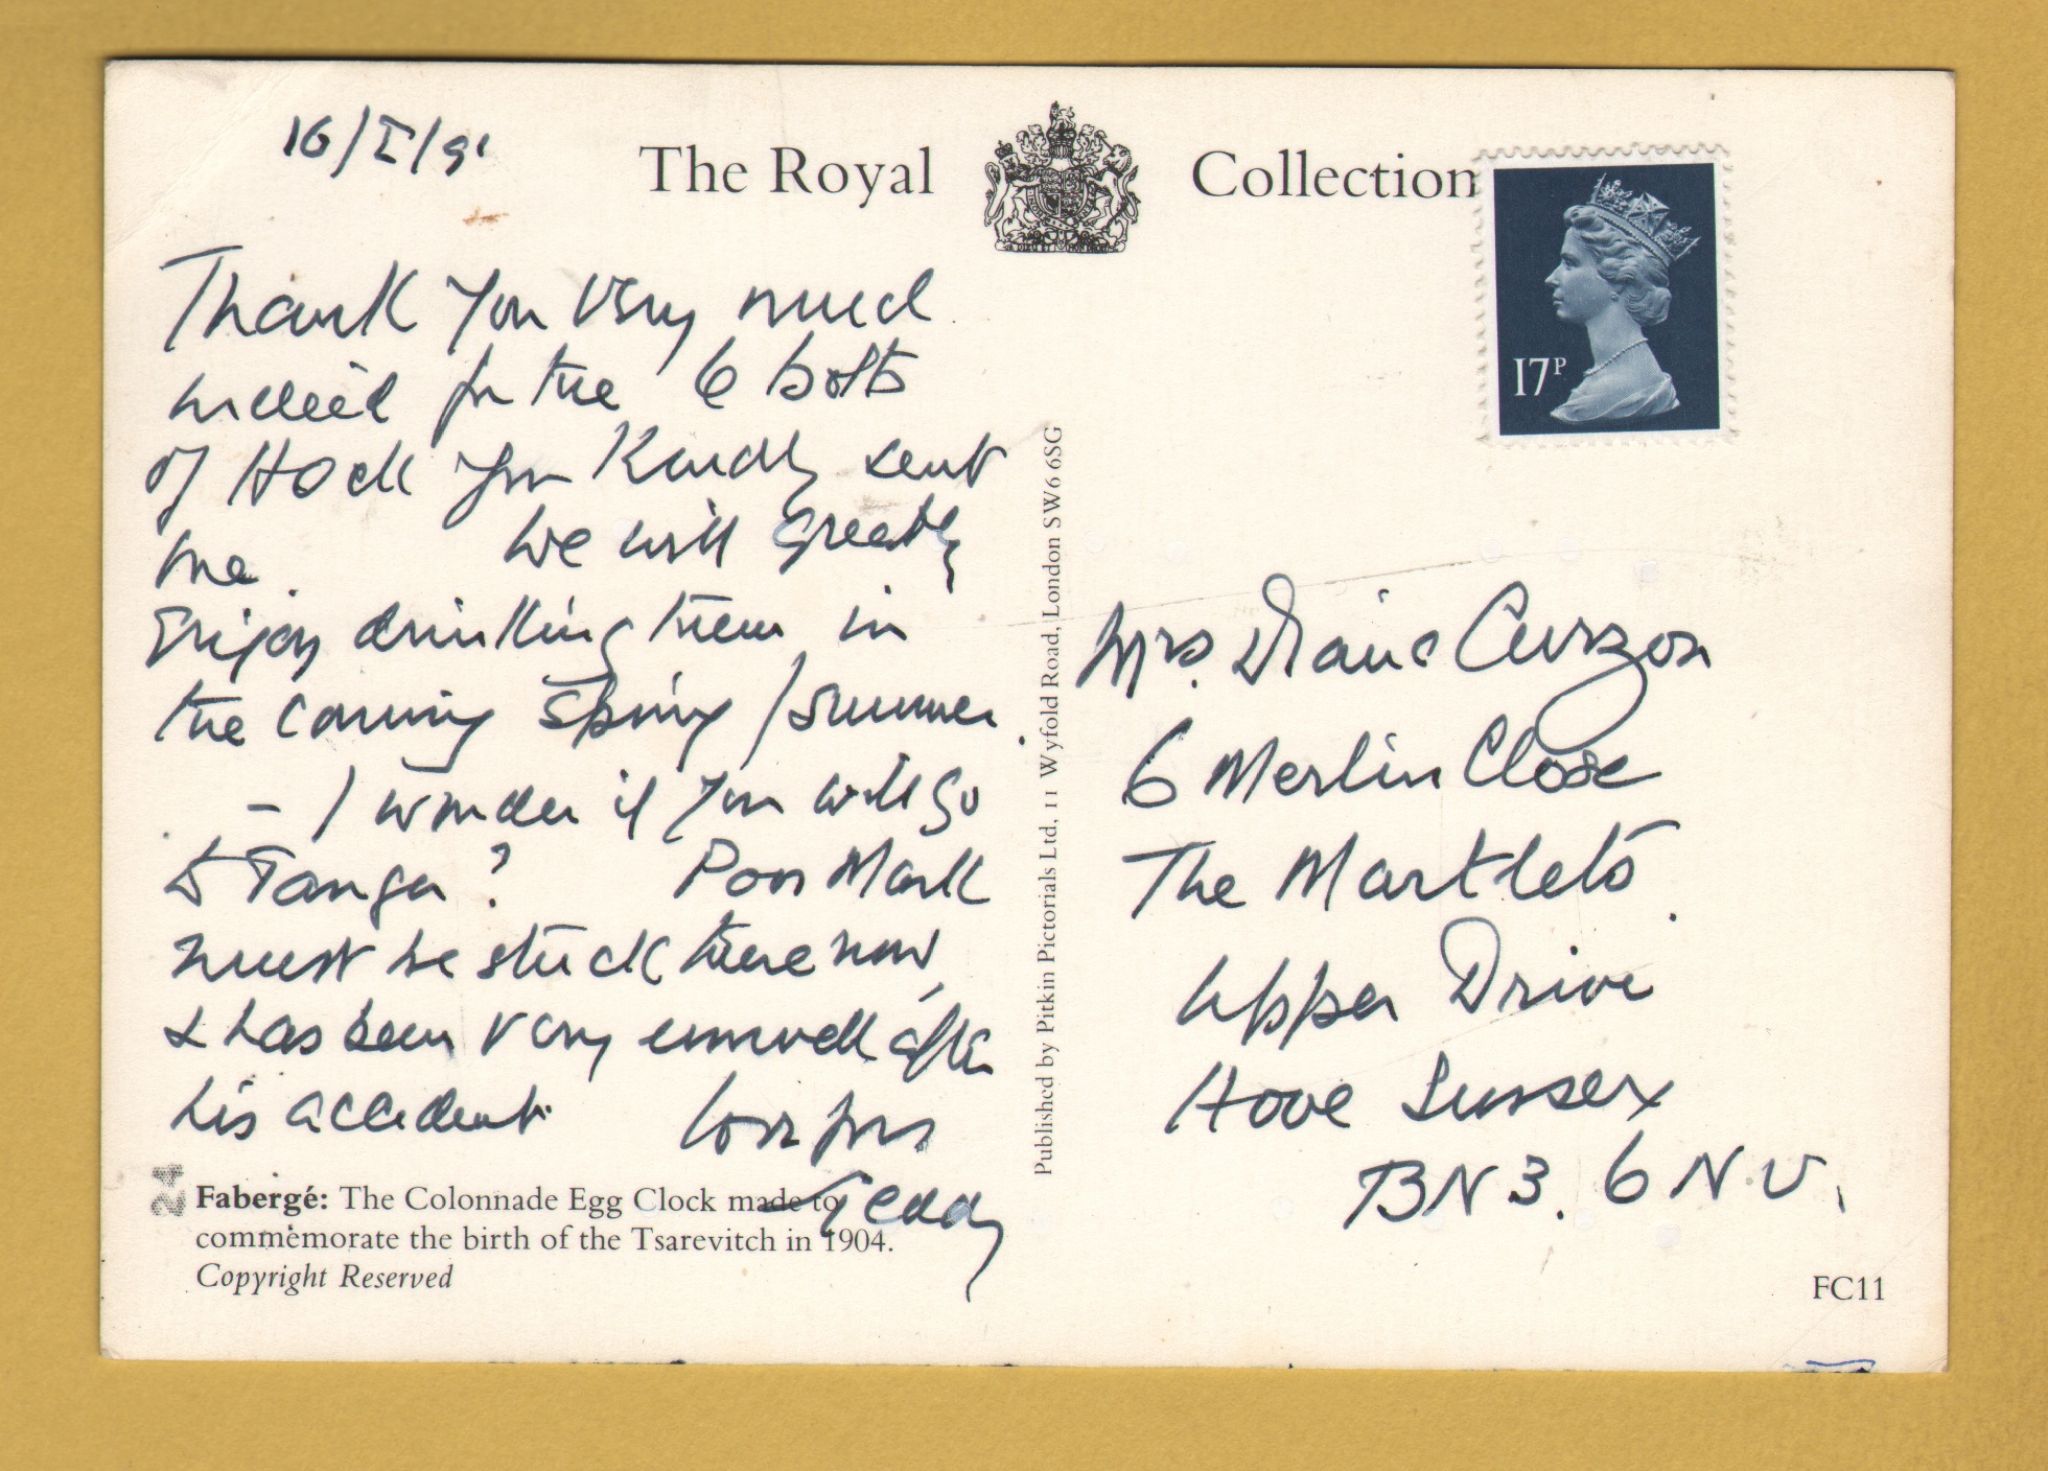 16/I/91
The Royal Collection
17P
Thank you very much
indeed for the 6 botts
of Hock you kindly sent
me. We will greatly
enjoy drinking them in
the coming spring / summer.
- I wonder if you will go
to Tanga? Poor Mark
must be stuck there now,
& has been very unwell after
his accident. Love from
Teddy
24
Fabergé: The Colonnade Egg Clock made to
commemorate the birth of the Tsarevitch in 1904.
Copyright Reserved
Published by Pitkin Pictorials Ltd, 11 Wyfold Road, London SW6 6SG
Mrs. Diane Curzon
6 Merlin Close
The Martlets.
Upper Drive
Hove Sussex
BN3. 6NU.
FC11